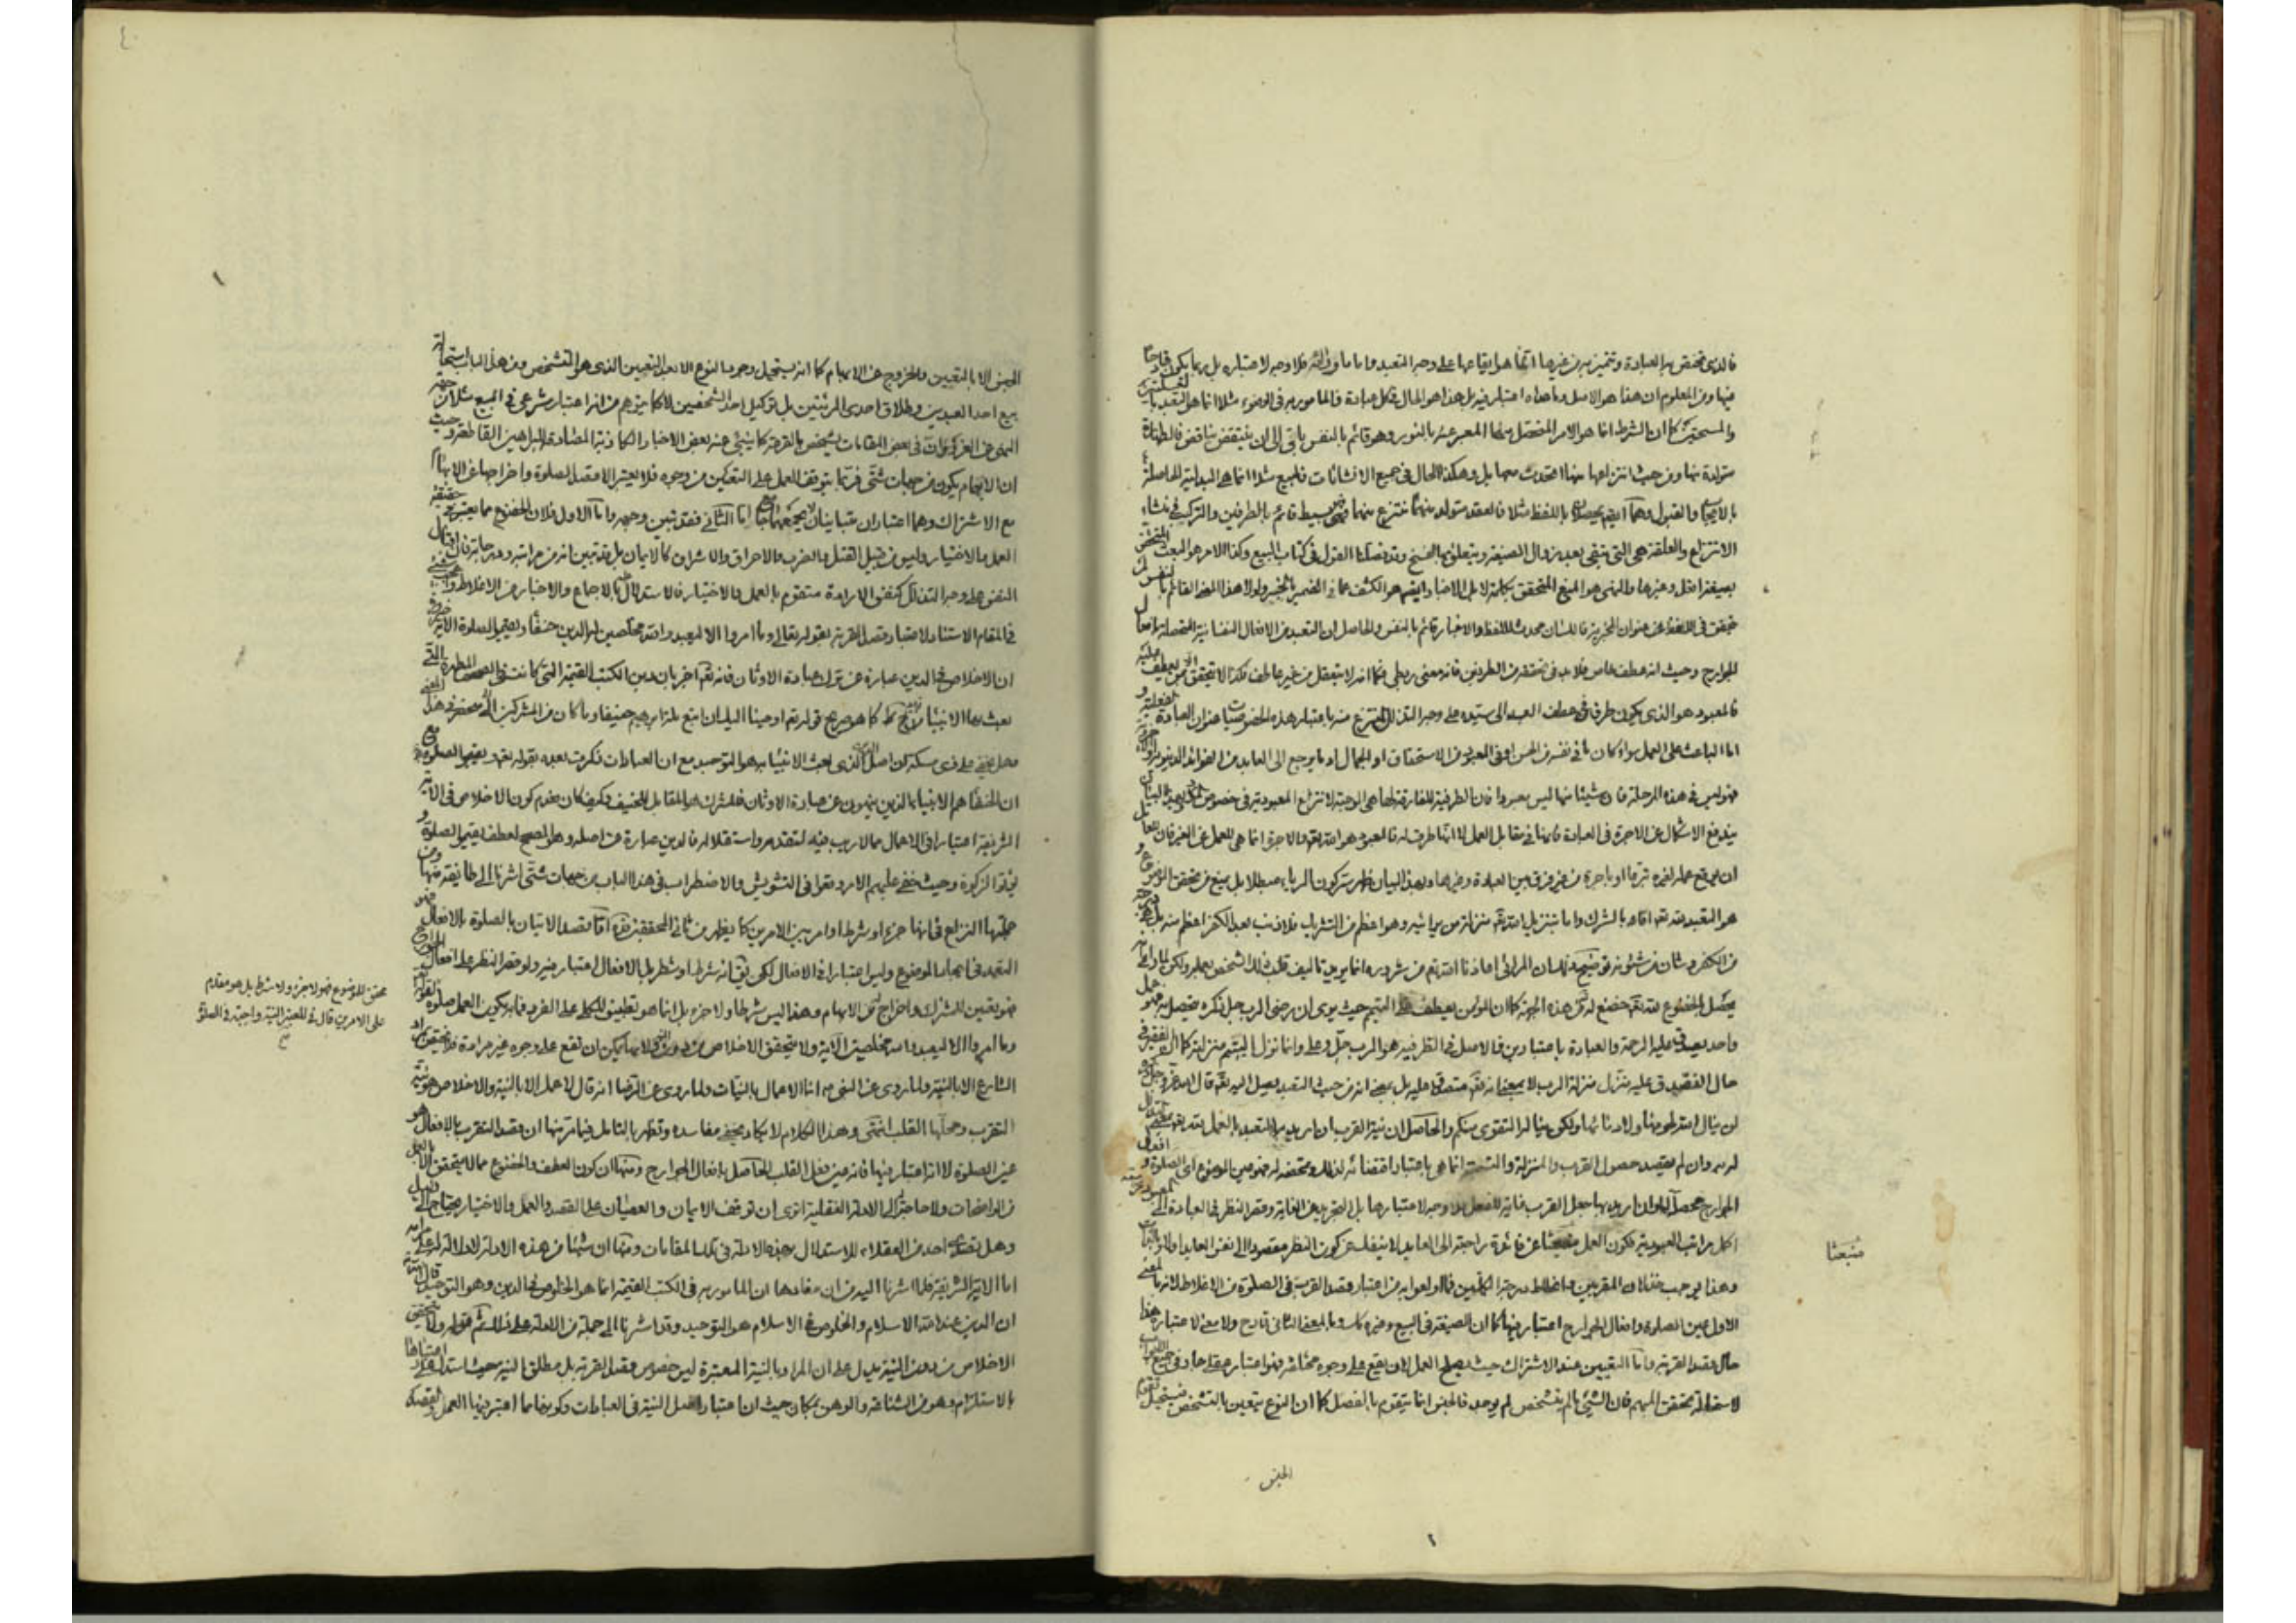 فالذی تختص به العبادة وتتميز به من غيرها انما هو ايقاعها على وجه التعبد واما ما فلا وجه لاعتباره بل ربما يكون قادحا
فيها ومن المعلوم ان هذا هو الاصل وما عداه اعتبار فيه بل هذا هو الحال فى كل عبادة فالمامور به فى الوضوء مثلا انما هو التعبد
كما ان الشرط انما هو الامر المتحصل منها المعبر عنه بالنور وهو قائم بالنفس باق الى ان ينتقض بناقض فالطهارة
متولدة منها ومن حيث انتزاعها منها اتحدت معها بل وهكذا الحال فى جميع الانشائات فالبيع مثلا انما هى المبدلية الحاصلة
بالايجاب والقبول وهما باللفظ مثلا فالعقد متولد منهما منتزع منهما فهى بسيط قائم بالطرفين والتركب فى منشاء
الانتزاع والعلقة هى التى تبقى بعد زوال الصيغة ويتعلق بها الفسخ وقد فصلنا القول فى كتاب البيع وكذا الامر هو البعث
بصيغة افعل وغيرها والنهى هو المنع المتحقق بكلمة لا بل الاخبار ايضا هو الكشف عما فى الضمير بالخبر ولولا هذا المعنى القائم بالنفس لم
يتحقق فى اللفظ عنوان الخبرية فاللسان محدث للفظ والاخبار قائم بالنفس والحاصل ان التعبد من الافعال النفسانية المتحصلة بافعال
الجوارح وحيث انه عطف خاص فلا بد فى تحققه من الطرفين فانه معنى ربطى فكما انه لا يتعقل من غير عاطف فكذا لا يتحقق من
فالمعبود هو الذى يكون طرفا فى عطف العبد الى سيده على وجه التذلل المنتزع منه باعتبار هذه الخصوصيات عنوان العبادة
اما الباعث على العمل سواء كان ما فى نفسه من الحسن او فى المعبود من الاستحقاق او الجمال او ما يرجع الى العابد من الفوائد الدنيوية
فهو ليس فى هذه المرحلة فان شيئا منها ليس معبودا فان الطرفية المفارقة لها هى الموجبة لانتزاع المعبودية فى خصوص
يندفع الاشكال عن الاجرة فى العبادة فانها فى مقابل العمل لا انها طرف له فالمعبود هو الله تعالى والاجرة انما هى للعمل عن الغير فان
ان يوقع عمله لغيره تبرعا او باجرة من غير فرق بين العبادة وغيرها وبهذا البيان ظهر سر كون الرياء مبطلا بل يمنع من تحقق الموضوع
هو التعبد لله تعالى بالشرك واما بتنزيل الله تعالى منزلة من يرائيه وهو اعظم من التشريك فلا ذنب بعد الكفر اعظم منه بل
من الكفر وشان من شئونه توضيح ذلك ان المرائى اعاذنا الله تعالى من شروره انما يريد تاليف قلب ذلك الشخص بعمله ولكن لما راى
يحصل بالخضوع لله تعالى خضع له من هذه الجهة كما ان المؤمن يعطف على اليتيم حيث يرى ان رضى الرب جل ذكره يحصل به
واحد يصدق عليه الرحمة والعبادة باعتبارين فالاصل فى الطرفية هو الرب جل وعلى وانما نزل اليتيم منزلته كما ان الفقير فى
حال التصدق عليه ينزل منزلة الرب لا بمعنى انه تعالى متصدق عليه بل بمعنى انه من حيث التعبد يصل اليه تعالى قال الله
لن ينال الله لحومها ولا دمائها ولكن يناله التقوى منكم والحاصل ان نية القرب ان اريد بها التعبد بالعمل لله
له سره وان لم يقصد حصول القرب والمنزلة والتسمية انما هى باعتبار اقتضائه لذلك
الجوارح محصلة له وان اريد بها جعل القرب غاية للفعل فلا وجه لاعتبارها بل التجريد عن الغاية وقصر النظر فى العبادة الى
اكمل مراتب العبودية فكون العمل منبعثا عن فائدة راجعة الى العابد لا ينفك عن كون النظر مقصورا الى نفس العابد
وهذا يوجب خذلان المقربين وانحطاط درجة الكملين فما اولعوا به من اعتبار قصد القربة فى الصلوة من الاغلاط
الاول عين الصلوة وافعال الجوارح اعتبر فيها كما ان الصيغة فى البيع وغيره كذلك وبالمعنى الثانى قادح ولا معنى لاعتباره هذا
حال قصد القربة واما التعيين عند الاشتراك حيث يصلح العمل لان يقع على وجوه مختلفة فهو اعتبار عقلى جار فى جميع
لاستحالة تحقق المبهم فان الشئ ما لم يتشخص لم يوجد فالجنس انما يتقوم بالفصل كما ان النوع يتعين بالتشخص فيستحيل
منبعثا
الجنس
٢
الجنس الا بالتعيين والخروج عن الابهام كما انه يستحيل وجود النوع الا بعد التعيين الذى هو التشخص ومن هذا الباب استحالة
بيع احد العبدين وطلاق احدى المرئتين بل توكيل احد الشخصين لا كما يتوهم من انه اعتبار شرعى فى البيع مثلا
النهى عن الغرر وان فى بعض المقامات يشخص بالقرعة كما ينبئ عنه بعض الاخبار الكاذبة المضادة للبراهين القاطعة وحيث
ان الابهام يكون من جهات شتى فربما يتوقف العمل على التعيين من وجوه فلا يعتبر الا قصد الصلوة واخراجها عن الابهام
مع الاشتراك وهما اعتباران متباينان اما الثانى فقد تبين وجهه واما الاول فلان الخضوع مما يعتبر
العمل والاختيار وليس من قبيل القتل والضرب والاحراق والاشراق كالايمان بل قد تبين انه من مراتبه ودرجاته فان
النفس على وجه التذلل كنفس الارادة متقوم بالعمل والاختيار فالاستدلال بالاجماع والاخبار من الاغلاط
فى المقام الاستناد لاعتبار قصد القربة بقوله تعالى وما امروا الا ليعبدوا الله مخلصين له الدين حنفاء ويقيموا الصلوة الاية
ان الاخلاص فى الدين عبارة عن ترك عبادة الاوثان فانه تعالى اخبر بان دين الكتب القيمة التى كانت فى الصحف المطهرة التى
بعث بها الانبياء كما هو صريح قوله تعالى اوحينا اليك ان اتبع ملة ابراهيم حنيفا وما كان من المشركين
وهل يخفى على ذى مسكة ان اصل الدين الذى بعث الانبياء به هو التوحيد مع ان العبادات ذكرت بعده بقوله تعالى ويقيموا الصلوة مع
ان الحنفاء هم الانبياء الذين ينهون عن عبادة الاوثان فالمشرك هو المقابل للحنيف وكيف كان فعدم كون الاخلاص فى الاية
الشريفة اعتبارا فى الاعمال مما لا ريب فيه لتقدمه واستقلاله فالدين عبارة عن اصله وهو المصحح لعطف يقيموا الصلوة و
يؤتوا الزكوة وحيث خفى عليهم الامر وقعوا فى التشويش والاضطراب فى هذا الباب من جهات شتى اشرنا الى طائفة منها
جملتها النزاع فى انها جزء او شرط او امر بين الامرين كما يظهر من ثانى المحققين اما قصد الاتيان بالصلوة بالافعال فهو
التعبد فى ايجاد الموضوع وليس اعتبارا فى الافعال لكى يقال انه شرط او شطر بل الافعال اعتبار فيه ولو قصر النظر على افعال
فهو تعيين للمشترك واخراج عن الابهام وهذا ليس شرطا ولا جزء بل انما هو تطبيق للكلى على الفرد فما به يكون العمل صلوة
وما امروا الا ليعبدوا الله مخلصين الآية ولا يتحقق الاخلاص من دون النية لانها يمكن ان تقع على وجوه غير مرادة
الشارع الا بالنية ولما روى عن النبى انما الاعمال بالنيات ولما روى عن الرضا انه قال لا عمل الا بالنية والاخلاص هو نية
التقرب ومحلها القلب انتهى وهذا الكلام لا يكاد يخفى مفاسده وتظهر بالتامل فيما مر منها ان قصد التقرب بالافعال هو
عين الصلوة لا انه اعتبار فيها فانه من فعل القلب الحاصل بافعال الجوارح ومنها ان كون العطف والخضوع مما لا يتحقق الا بالعمل
من الواضحات ولا حاجة الى الادلة النقلية اترى ان توقف الايمان والعصيان على القصد والعمل والاختيار يحتاج الى دليل
وهل تصدى احد من العقلاء للاستدلال بهذه الادلة فى تلك المقامات ومنها ان شيئا من هذه الادلة لا دلالة له على مرامه
اما الاية الشريفة فلما اشرنا اليه من ان مفادها ان المامور به فى الكتب القيمة انما هو الخلوص فى الدين وهو التوحيد قال الله
ان الدين عند الله الاسلام والخلوص فى الاسلام هو التوحيد وقد اشرنا الى جملة من الادلة على ذلك ثم قوله ولا يتحقق
الاخلاص من دون النية يدل على ان المراد بالنية المعتبرة ليس خصوص قصد القربة بل مطلق النية حيث استدل على اعتبارها
بالاستلزام وهو من الشناعة والوهن بمكان حيث ان اعتبار اصل النية فى العبادات وكونها مما اعتبر فيها العمل والقصد
محقق للموضوع فهو لا جزء ولا شرط بل هو مقدم
على الامرين قال فى المعتبر النية واجبة فى الصلوة